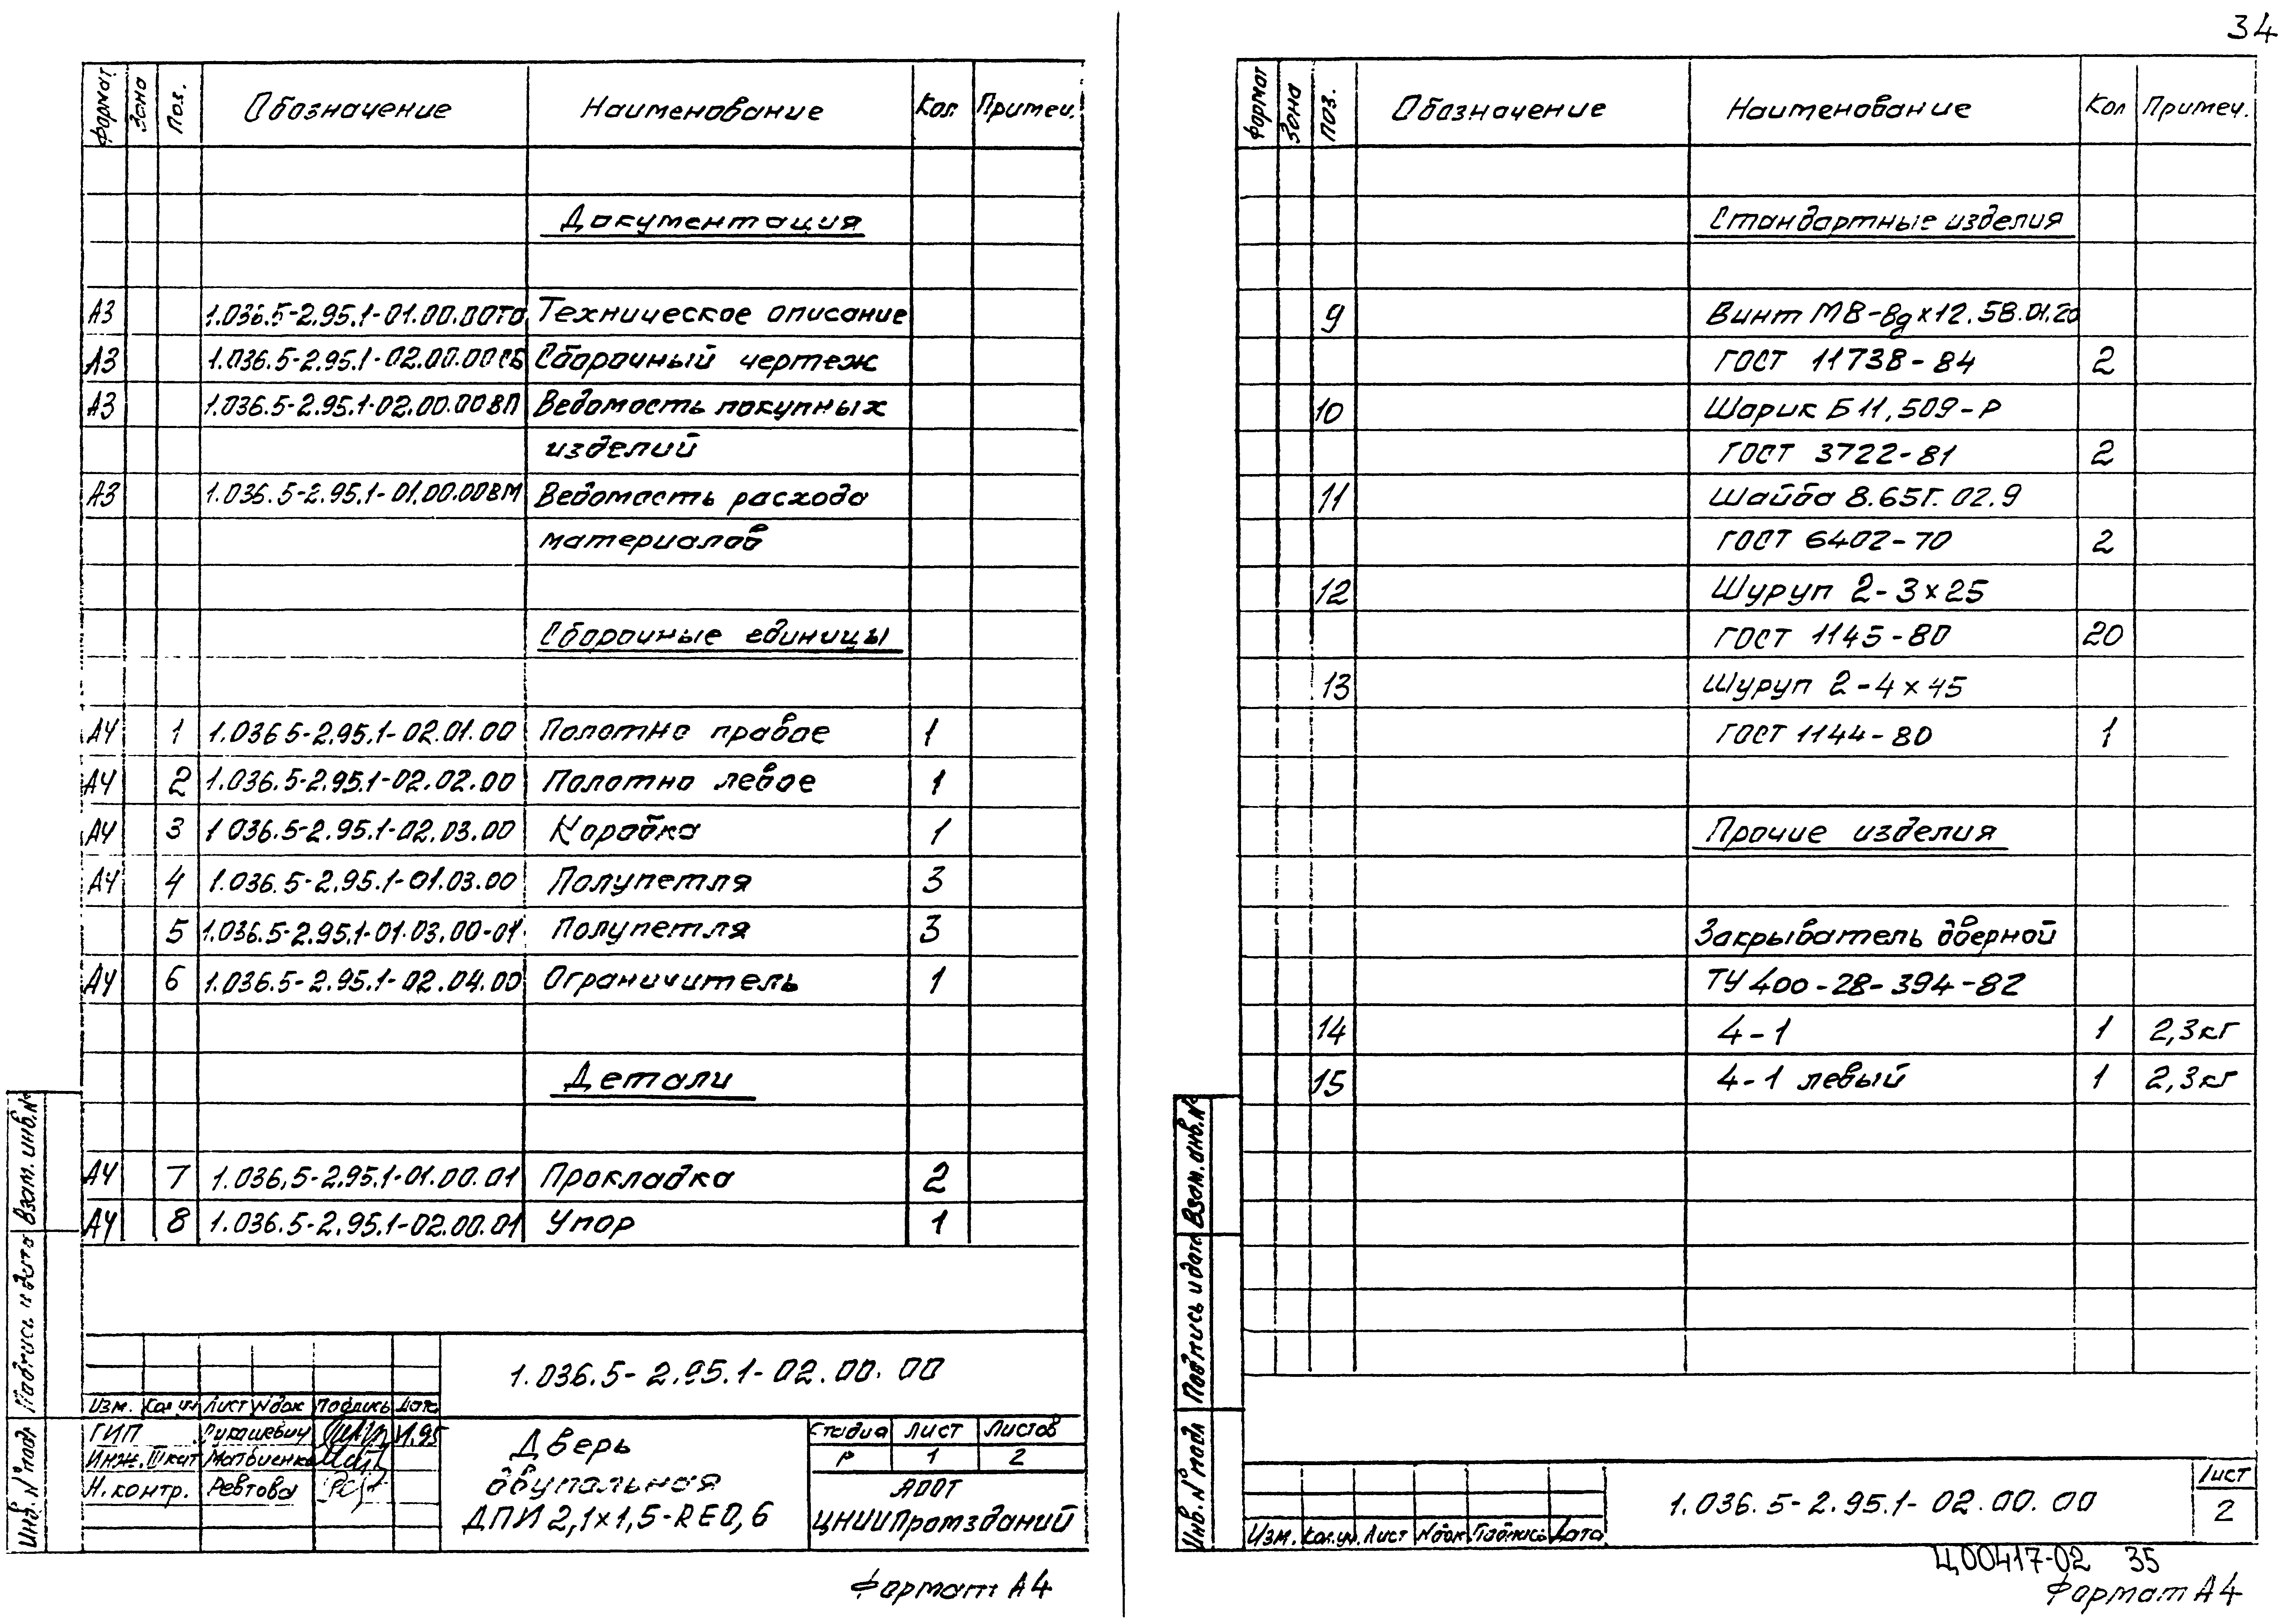 34
Формат Зона Поз. Обозначение Наименование Кол. Примеч.
Документация
А3 1.036.5-2.95.1-01.00.00ТО Техническое описание
А3 1.036.5-2.95.1-02.00.00СБ Сборочный чертеж
А3 1.036.5-2.95.1-02.00.00ВП Ведомость покупных
изделий
А3 1.036.5-2.95.1-01.00.00ВМ Ведомость расхода
материалов
Сборочные единицы
А4 1 1.036 5-2.95.1-02.01.00 Полотно правое 1
А4 2 1.036.5-2.95.1-02.02.00 Полотно левое 1
А4 3 1 036.5-2.95.1-02.03.00 Коробка 1
А4 4 1.036.5-2.95.1-01.03.00 Полупетля 3
5 1.036.5-2.95.1-01.03.00-01 Полупетля 3
А4 6 1.036.5-2.95.1-02.04.00 Ограничитель 1
Детали
А4 7 1.036.5-2.95.1-01.00.01 Прокладка 2
А4 8 1.036.5-2.95.1-02.00.01 Упор 1
Взам. инв. №
Подпись и дата
Инв. № подл
1.036.5-2.95.1-02.00.00
Изм. Кол.уч Лист Nдок Подпись Дата
ГИП Лукашевич 11.95
Инж. Iкат Матвиенко
Н.контр. Ревтова
Дверь
двупольная
ДПИ 2,1×1,5-RE0,6
Стадия Лист Листов
Р 1 2
АООТ
ЦНИИПромзданий
Формат А4
Формат Зона Поз. Обозначение Наименование Кол Примеч.
Стандартные изделия
9 Винт М8-8g×12.58.01.20
ГОСТ 11738-84 2
10 Шарик Б 11,509-Р
ГОСТ 3722-81 2
11 Шайба 8.65Г.02.9
ГОСТ 6402-70 2
12 Шуруп 2-3×25
ГОСТ 1145-80 20
13 Шуруп 2-4×45
ГОСТ 1144-80 1
Прочие изделия
Закрыватель дверной
ТУ 400-28-394-82
14 4-1 1 2,3кг
15 4-1 левый 1 2,3кг
Взам. инв. №
Подпись и дата
Инв. № подл
1.036.5-2.95.1-02.00.00
Изм. Кол.уч. Лист Nдок Подпись Дата
Лист
2
Ц00417-02 35
Формат А4